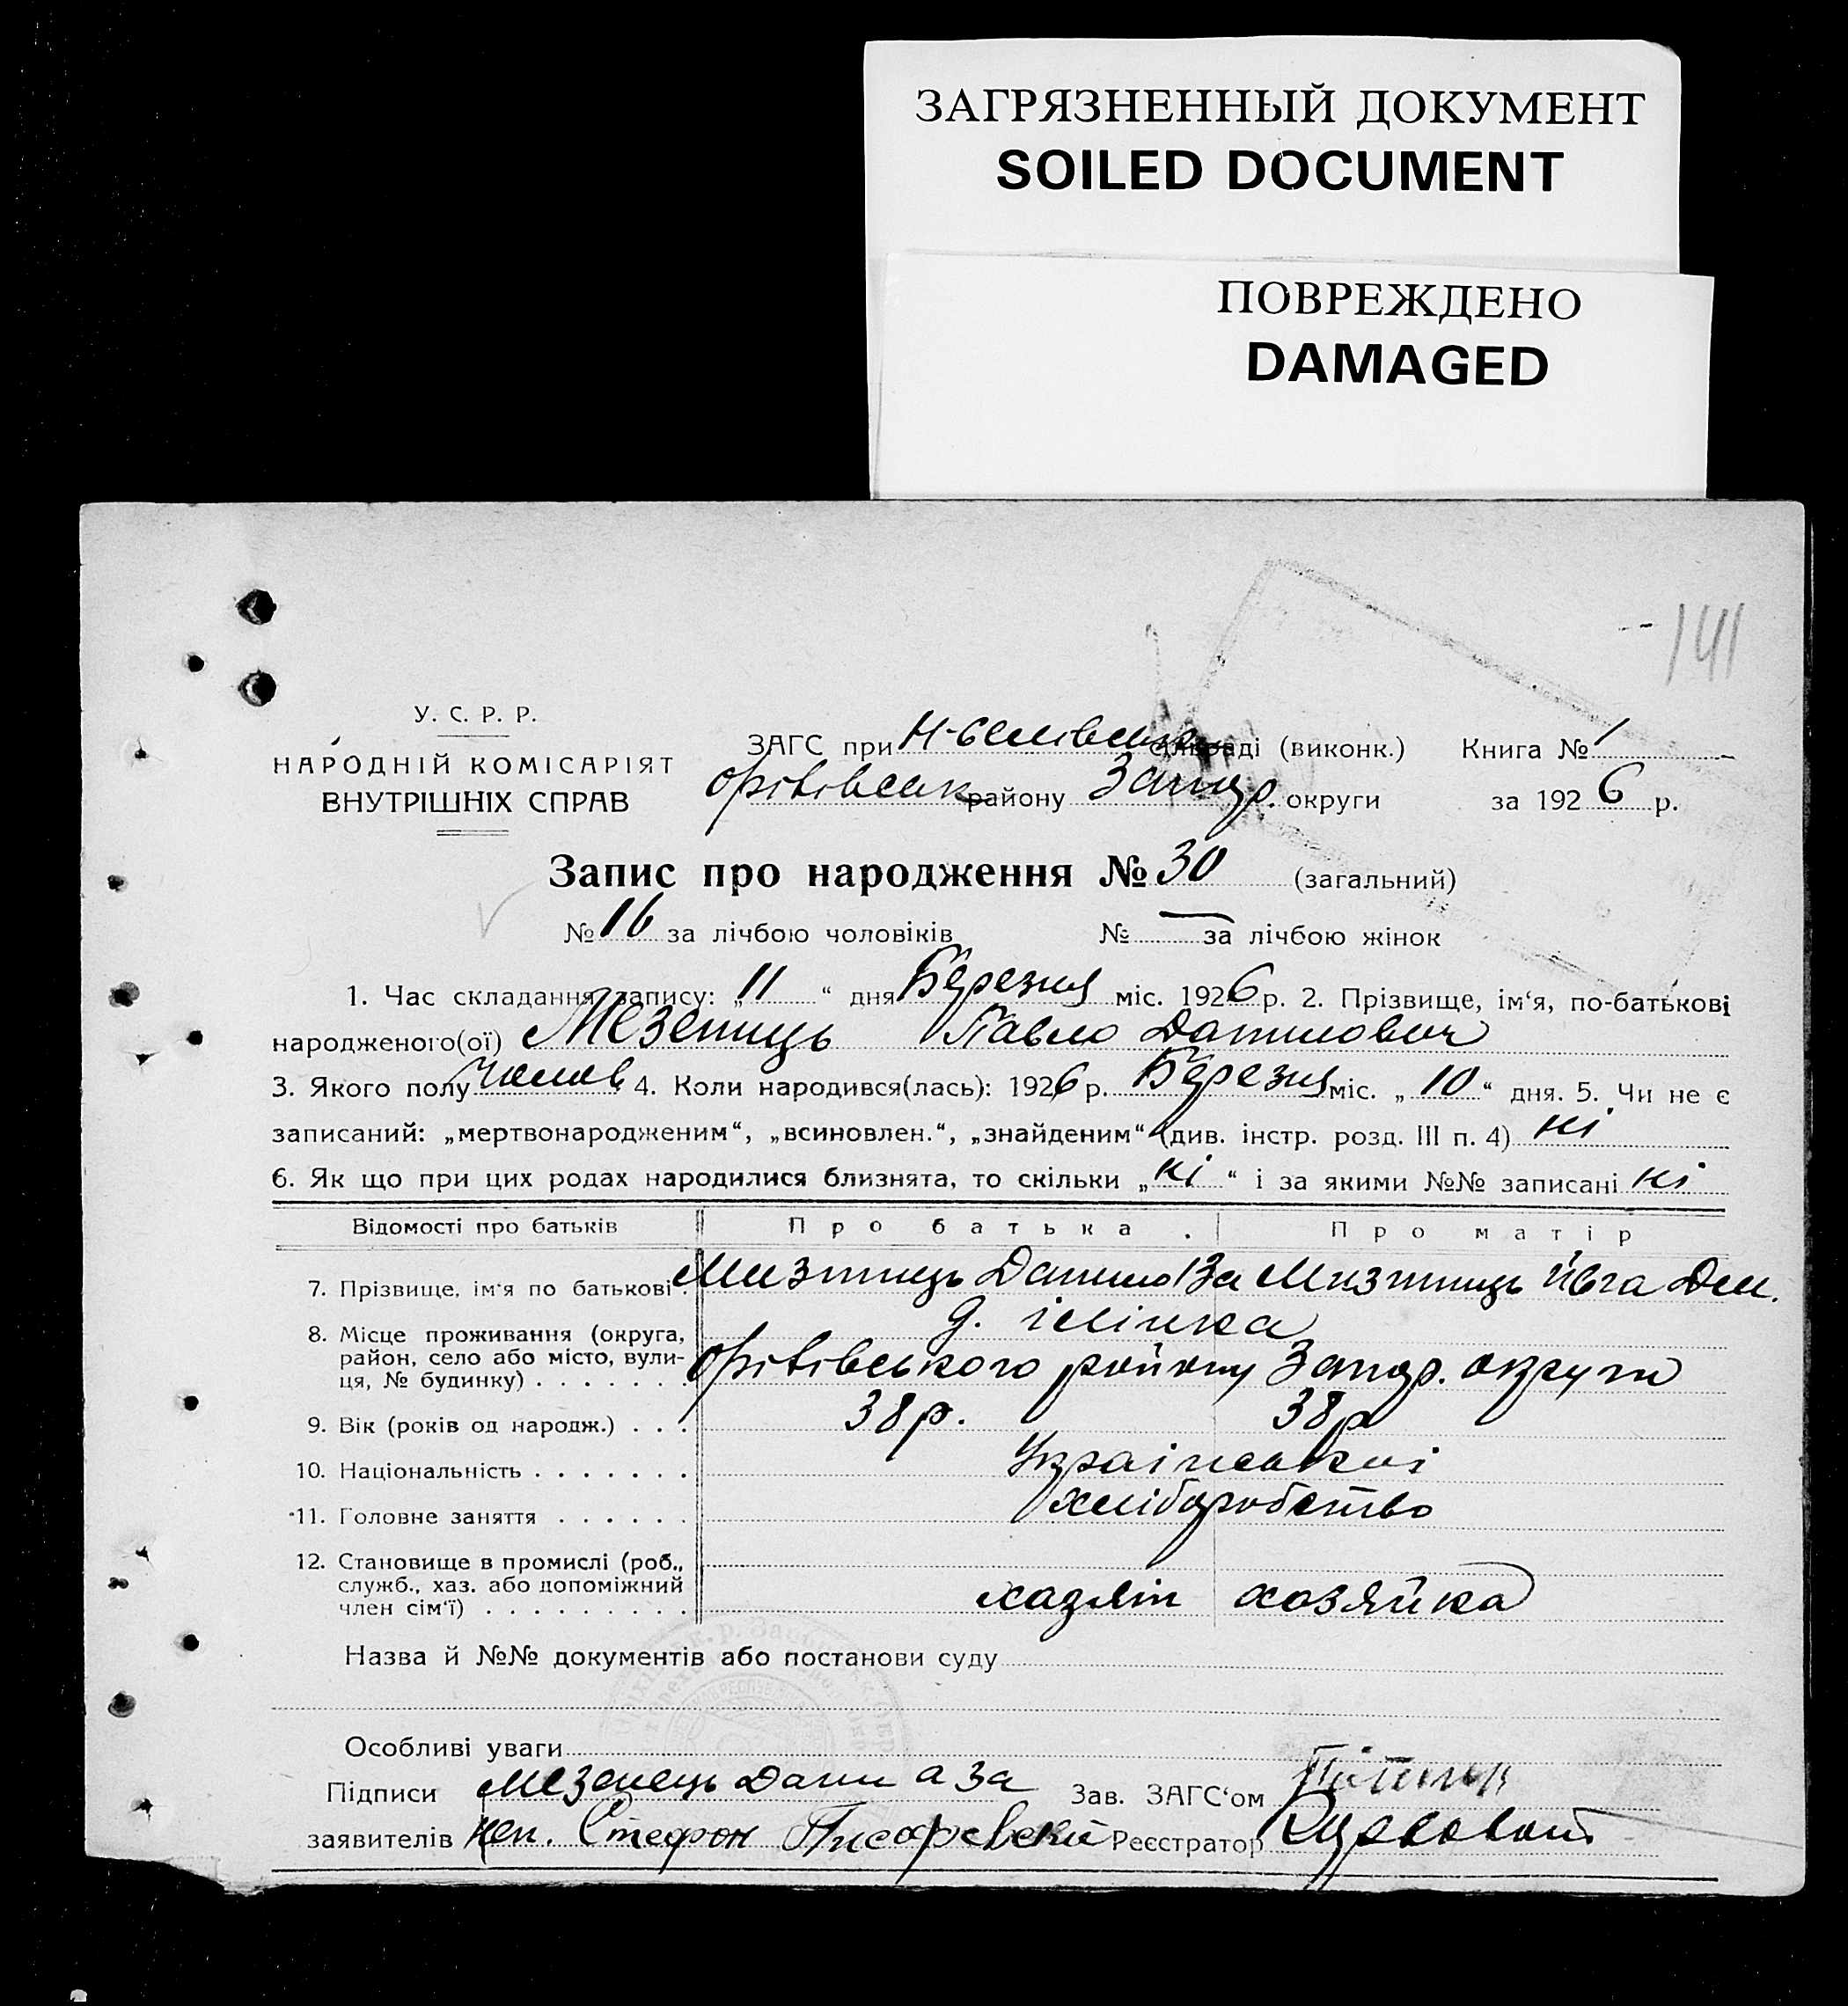 ЗАГРЯЗНЕННЫЙ ДОКУМЕНТ
SOILED DOCUMENT
ПОВРЕЖДЕНО
DAMAGED
141
У. С. Р. Р.
НАРОДНІЙ КОМІСАРІЯТ
ВНУТРІШНІХ СПРАВ
ЗАГС при раді (виконк.) Книга № 1
району Запор. округи за 1926 р.
Запис про народження № 30 (загальний)
№ 16 за лічбою чоловіків № — за лічбою жінок
1. Час складання запису: „11“ дня Березня міс. 1926 р. 2. Прізвище, ім‘я, по-батькові
народженого(ої) Мезенець Павло Данилович
3. Якого полу Чолов. 4. Коли народився(лась): 1926 р. Березня міс. „10“ дня. 5. Чи не є
записаний: „мертвонародженим“, „всиновлен.“, „знайденим“ (див. інстр. розд. III п. 4) ні
6. Як що при цих родах народилися близнята, то скільки „ні“ і за якими №№ записані ні
Відомості про батьків Про батька Про матір
7. Прізвище, ім‘я по батькові Данило Йвга
8. Місце проживання (округа,
район, село або місто, вули-
ця, № будинку) району Запор. округи
9. Вік (років од народж.) 38 р. 38 р
10. Національність Українські
11. Головне заняття хліборобство
12. Становище в промислі (роб.,
служб., хаз. або допоміжний
член сім‘ї) хазяїн хозяйка
Назва й №№ документів або постанови суду
Особливі уваги
Підписи Мезенець Зав. ЗАГС‘ом
заявителів Стефон Писаревский Реєстратор